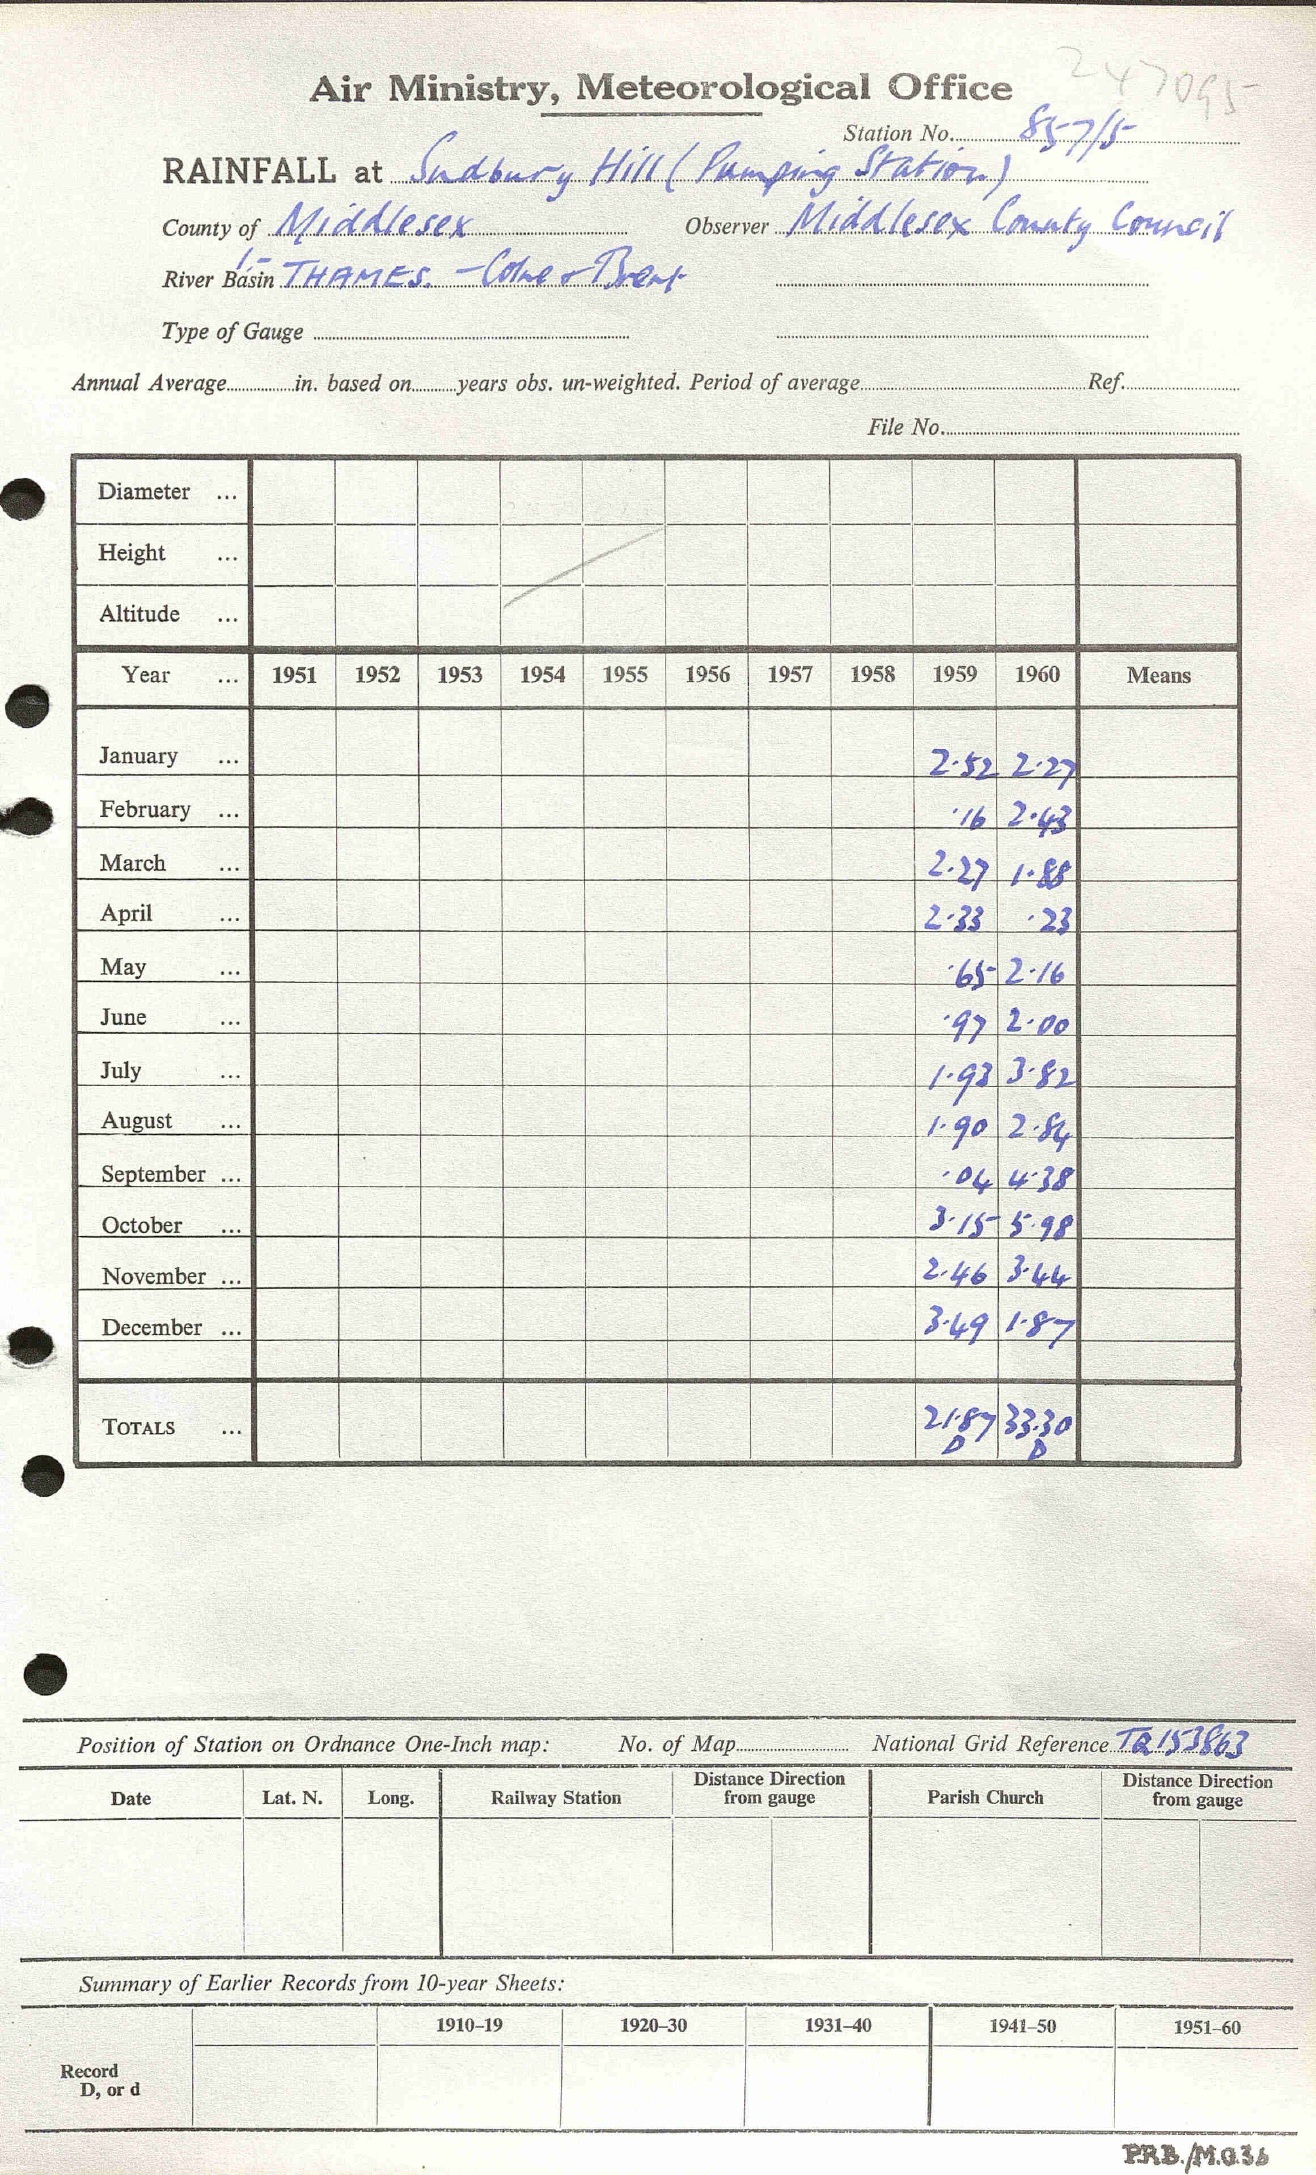 247095
Air Ministry, Meteorological Office
Station No. 857/5
RAINFALL at Sudbury Hill (Pumping Station)
County of Middlesex Observer Middlesex County Council
River Basin THAMES. 1.- Colne & Brent
Type of Gauge
Annual Average in. based on years obs. un-weighted. Period of average Ref.
File No.
Diameter ...
Height ...
Altitude ...
Year ... 1951 1952 1953 1954 1955 1956 1957 1958 1959 1960 Means
January ... 2.52 2.27
February ... .16 2.43
March ... 2.27 1.88
April ... 2.33 .23
May ... .65 2.16
June ... .97 2.00
July ... 1.93 3.82
August ... 1.90 2.84
September ... .04 4.38
October ... 3.15 5.98
November ... 2.46 3.44
December ... 3.49 1.87
TOTALS ... 21.87 33.30
D D
Position of Station on Ordnance One-Inch map: No. of Map National Grid Reference TQ 153863
Date Lat. N. Long. Railway Station Distance Direction from gauge Parish Church Distance Direction from gauge
Summary of Earlier Records from 10-year Sheets:
1910–19 1920–30 1931–40 1941–50 1951–60
Record
D, or d
P.R.B./M.O.36